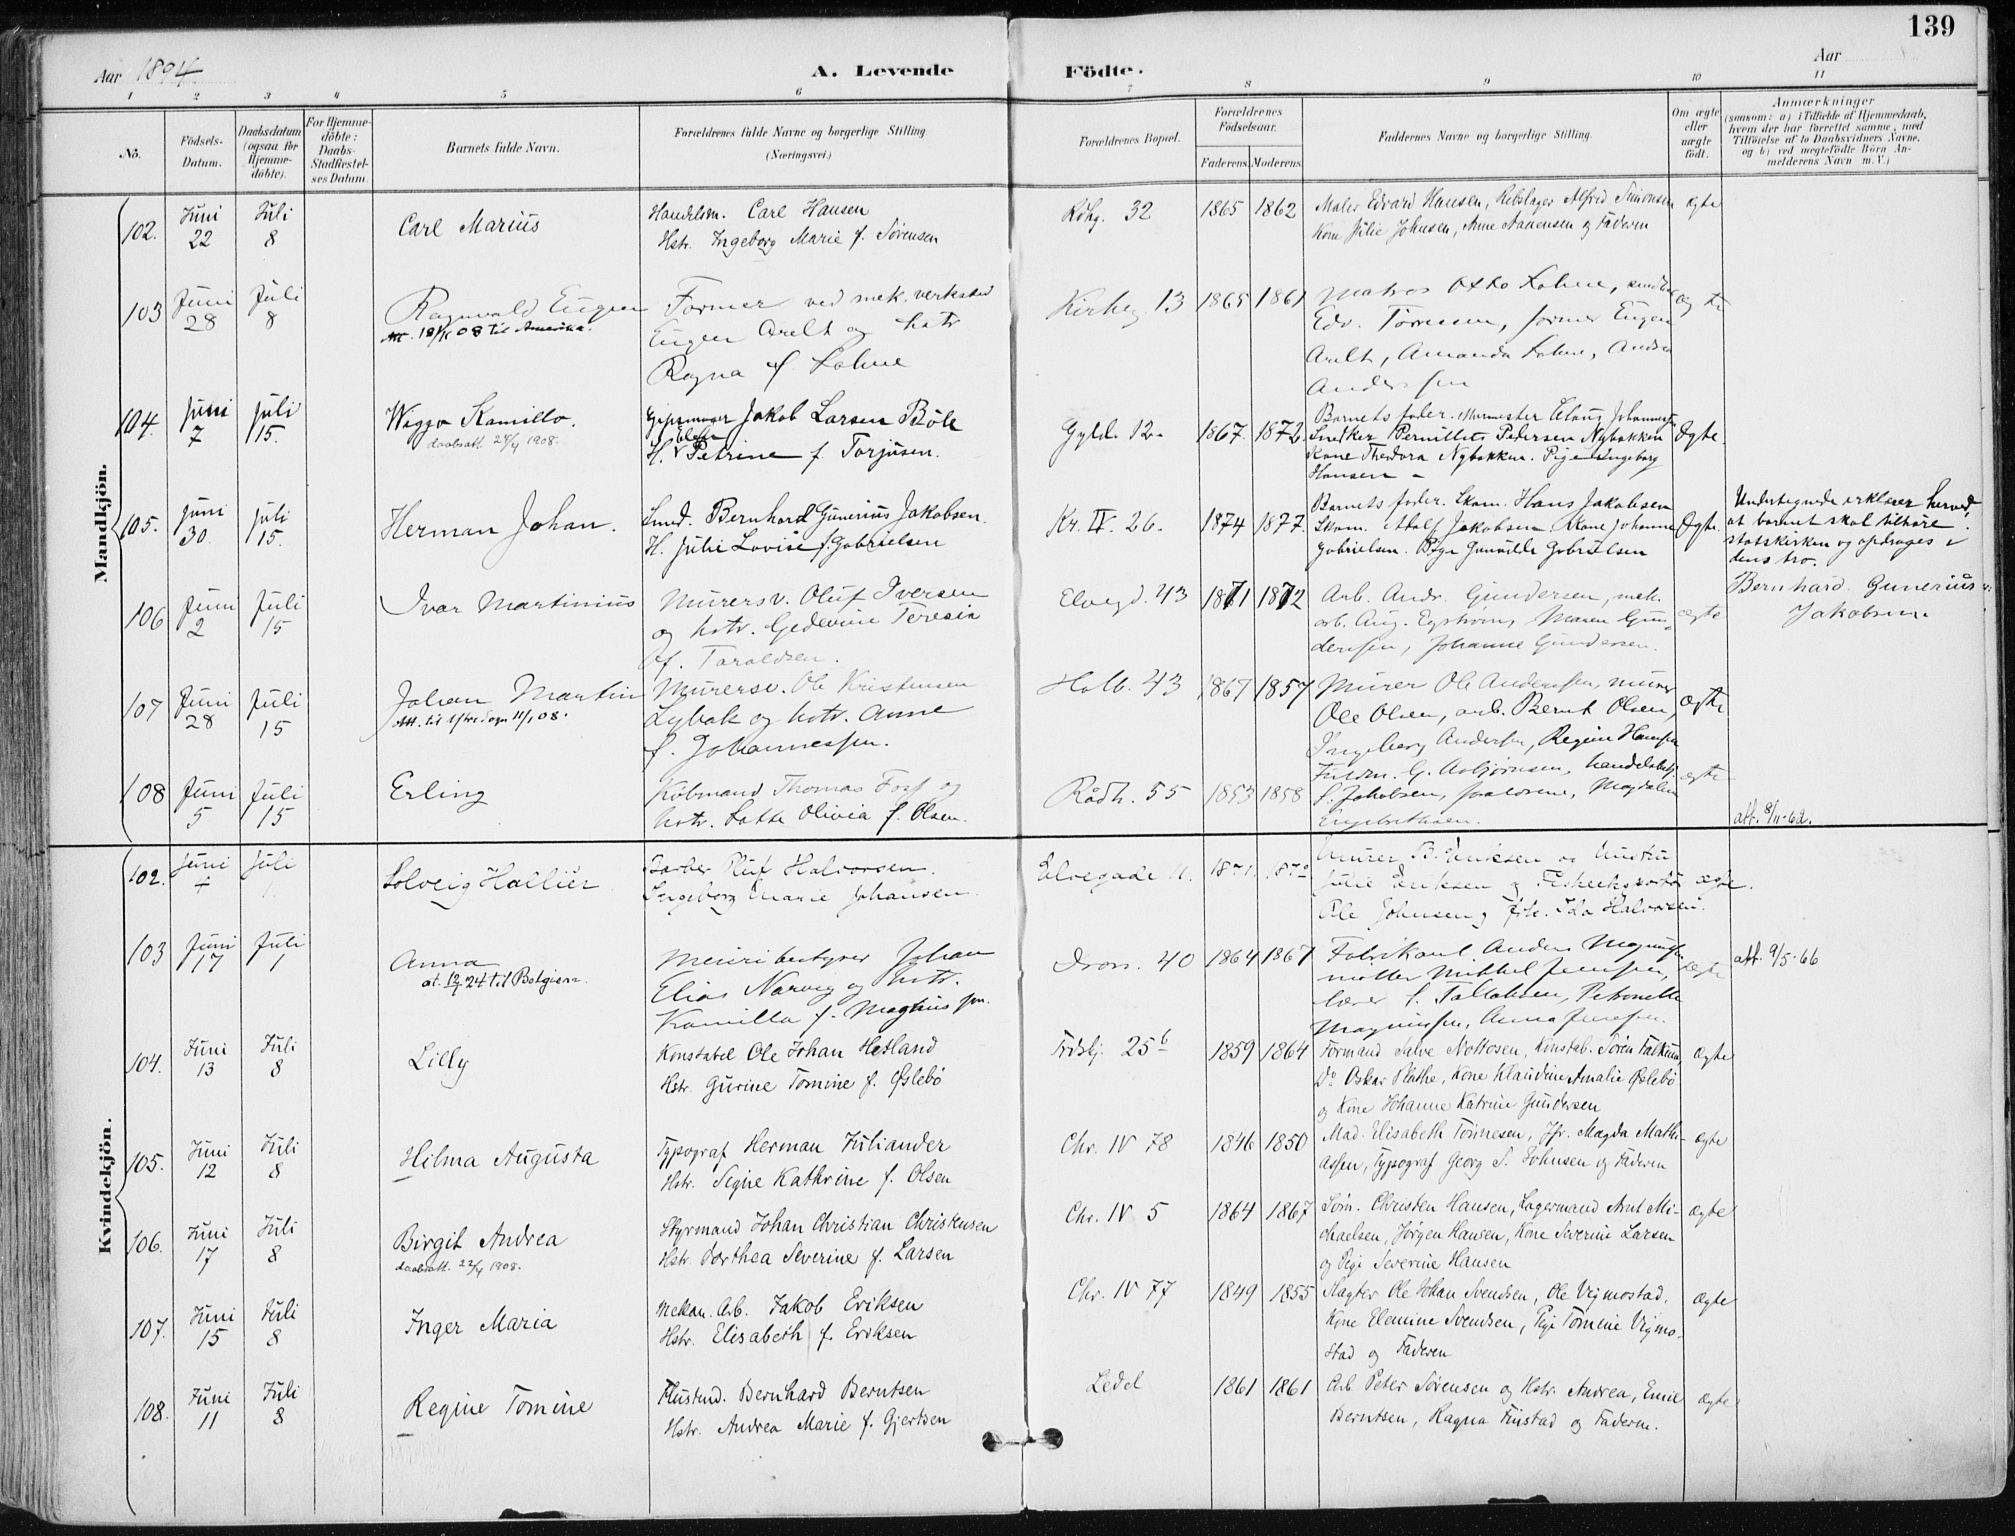 139
Aar 1894
A. Levende Födte.
Aar
1 2 3 4 5 6 7 8 9 10 11
No.
Födsels-Datum.
Daabsdatum (ogsaa for Hjemme-döbte).
For Hjemme-döbte: Daabs-Stadfæstel-ses Datum.
Barnets fulde Navn.
Forældrenes fulde Navne og borgerlige Stilling (Næringsvei.)
Forældrenes Bopæl.
Forældrenes Födselsaar.
Faderens. Moderens.
Faddernes Navne og borgerlige Stilling.
Om ægte eller uægte födt.
Anmærkninger (saasom: a) i Tilfælde af Hjemmedaab, hvem der har forrettet samme, med Tilföielse af to Daabsvidners Navne, og b) ved uegtefödte Börn An-melderens Navn m.V.)
Mandkjön.
102. Juni 22 Juli 8 Carl Marius
Handelsm. Carl Hansen
Hstr. Ingeborg Marie f. Sørensen
Rdhg. 32 1865 1862
Maler Edvard Hansen, Rebslager Alfred Simonsen
Kone Julie Johnsen, Anne Aanensen og Faderen
ægte
103 Juni 28 Juli 8 Ragnvald Eugen
08 til Amerika.
Former ved mek. verksted
Eugen Arelt og hstr
Ragna f. Lohne
Kirkeg. 13 1865 1861
Matros Otto Lohne,
Edv. Tønnessen, former Eugen
Arelt, Amanda Lohne,
Anderssen
ægte
104. Juni 7 Juli 15. Wiggo Kamillo.
daabsatt. 28/4 1908.
Gipsmager Jakob Larsen Böle
H. Elen Petrine f. Torjusen.
Gyld. 12. 1867. 1872.
Barnets fader. Murmester
Snedker Pernillets Pedersen Nybakken
Kone Theodora Nybakken. Pige Ingeborg
Hansen
Ægte.
105. Juni 30. Juli 15. Herman Johan.
Smed. Bernhard Gunerius Jakobsen.
H. Julie Lovise f. Gabrielsen
Kr. IV. 26. 1874 1877.
Barnets fader. Skom. Hans Jakobsen
Skom. Adolf Jakobsen Kone Johanne
Gabrielsen. Pige Gunvilde Gabrielsen
Ægte.
Undertegnede erklærer herved,
at barnet skal tilhøre
statskirken og opdrages i
dens tro.
Bernhard Gunerius
Jakobsen.
106 Juni 2 Juli 15 Ivar Martinius
Murersv. Oluf Iversen
og hstr. Gedevine Teresia
f. Taraldsen.
Elvegd. 43 1871 1872
Arb. Andr. Gundersen, mek.
arb. Aug. Egstrøm, Maren Gun-
dersen, Johanne Gundersen.
ægte
107 Juni 28 Juli 15 Johan Martin
Murersv. Ole Kristensen
Lybak og hstr. Anne
f. Johannessen.
Holb. 43 1867 1857
Murer Ole Anderssen, murer
Ole Olsen, arb. Bernt Olsen,
Ingeborg Andersen, Regine Hanssen
ægte
108 Juni 5 Juli 15 Erling
Købmand Thomas Foss og
hstr. Lotte Olivia f. Olsen.
Rådh. 55 1853 1858
G. Asbjørnsen, handelsbetj.
S. Jakobsen, Magdalene
Engebrethsen.
ægte
att. 8/11-62.
Kvindekjön.
102. Juni Juli 1 Solveig Hallier
Barber Oluf Halvorsen.
Ingeborg Marie Johansen.
Elvegade 11. 1871. 1872
Murer B. Eriksen og Hustru
Julie Eriksen og
Ole Johnsen, frk. Ida Halvorsen.
ægte.
103 Juni 17 Juli 1 Anna
at. 12/1 24 til Belgien.
Meieribestyrer Johan
Elias Narvig og hstr.
Kamilla f. Magnussen.
Dron. 40 1864 1867
Fabrikant Anders Magnussen
møller Mikkel Jenssen,
lærer S. Tallaksen, Petronelle
Magnussen, Anna Jenssen.
ægte
att. 9/5-66
104. Juni 13 Juli 8 Lilly
Konstabel Ole Johan Hesland
Hstr. Gurine Tomine f. Øslebö
Frdslj. 25 b 1859 1864
Formand Salve Nottosen, Konstab. Søren Falkum,
Do Oskar Plathe, Kone Klaudine Amalie Øslebö
og Kone Johanne Katrine Gundersen
ægte
105. Juni 12 Juli 8 Hilma Augusta
Typograf Herman Juliander
Hstr. Signe Kathrine f. Olsen
Chr. IV 78 1846 1850
Mad. Elisabeth Tönnesen, Jfr. Magda Mathi-
assen, Typograf Georg S. Johnsen og Faderen
ægte
106. Juni 17 Juli 8 Birgit Andrea
daabsatt. 22/4 1908.
Styrmand Johan Christian Christensen
Hstr. Dorthea Severine f. Larsen
Chr. IV 5 1864 1867
Søm. Christen Hansen, Lagermand Anl. Mi-
chaelsen, Jørgen Hansen, Kone Severine Larsen
og Pige Severine Hansen
ægte
107. Juni 15 Juli 8 Inger Maria
Mekan. Arb. Jakob Eriksen
Hstr. Elisabeth f. Eriksen
Chr. IV 77 1849 1855
Slagter Ole Johan Svendsen, Ole Vigmostad,
Kone Elemine Svendsen, Pige Tomine Vigmo-
stad og Faderen
ægte
108. Juni 11 Juli 8 Regine Tomine
Hustmd. Bernhard Berntsen
Hstr. Andrea Marie f. Gjertsen
Ledel 1861 1861
Arb. Peter Sørensen og Hstr. Andrea, Emil
Berntsen, Ragna Fuistad og Faderen.
ægte